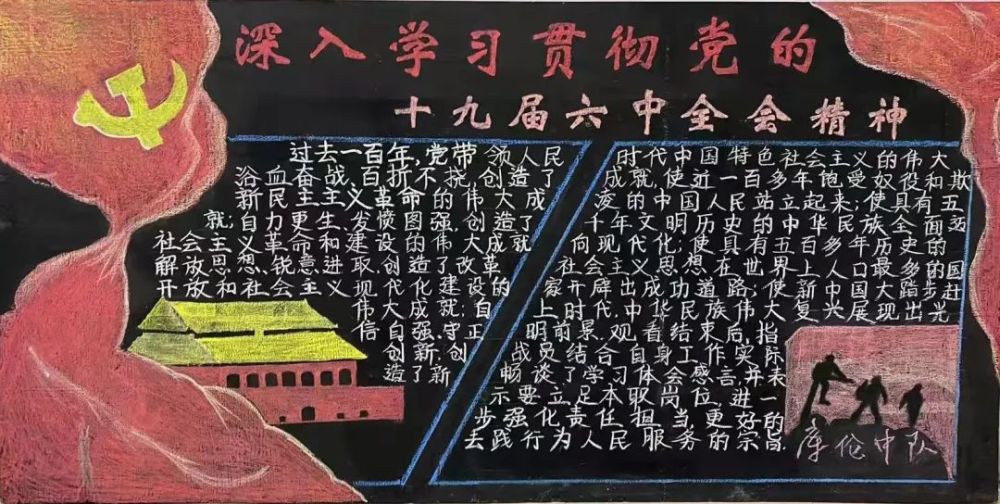 深入学习贯彻党的
十九届六中全会精神
过去一百年,党带领人民
浴血奋战、百折不挠,创造了
新民主主义革命的伟大成
就;自力更生、发愤图强,创造了
社会主义革命和建设的伟大成就;
解放思想、锐意进取,创造了改革
开放和社会主义现代化建设的
伟大成就;自
信自强、守正
创新,创
造了新
时代中国特色社会主义的伟大
成就,使近一百多年饱受奴役和欺
凌的中国人民站立起来;使具有五
千年的文明历史的中华民族全面迈
向现代化;使具有五百多年历史的
社会主义思想在世界上人口最多的国
家开辟出成功道路;使新中国大踏步赶
上时代,中华民族伟大复兴展现出光
明前景.观看结束后,指
战员结合自身工作实际
畅谈了学习体会感言,并表
示要立足本职岗位,进一
步强化责任担当,更好的
去践行为人民服务的宗旨.
库伦中队